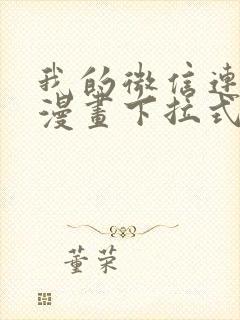 我的微信連
漫畫下拉式
董荣